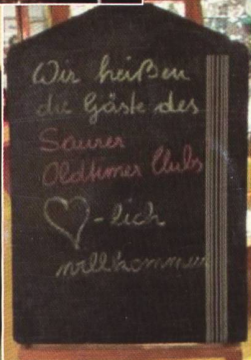 Wir heißen
die Gäste des
Saurer
Oldtimer Clubs
♡-lich
willkommen